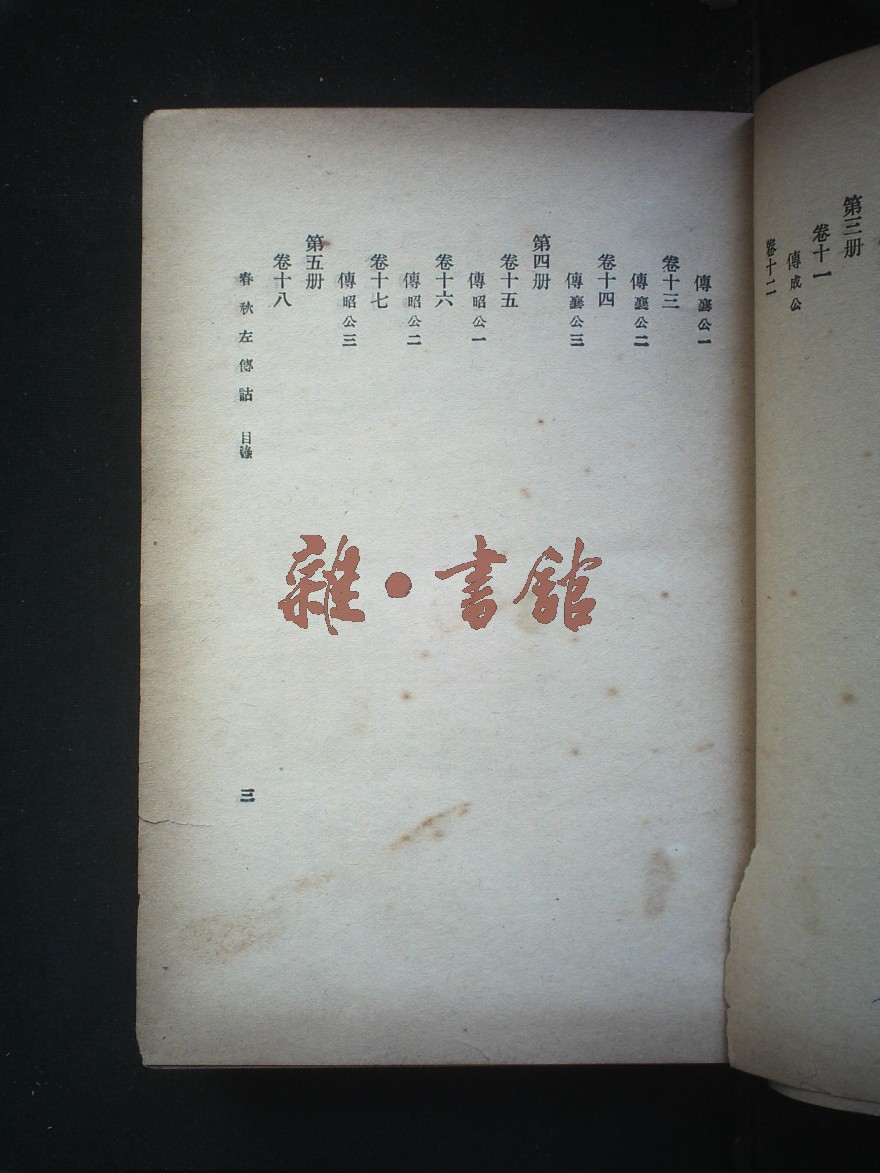 第三册
卷十一
傳成公
卷十二
傳襄公一
卷十三
傳襄公二
卷十四
傳襄公三
第四册
卷十五
傳昭公一
卷十六
傳昭公二
卷十七
傳昭公三
第五册
卷十八
春秋左傳詁 目錄
三
雜·書館